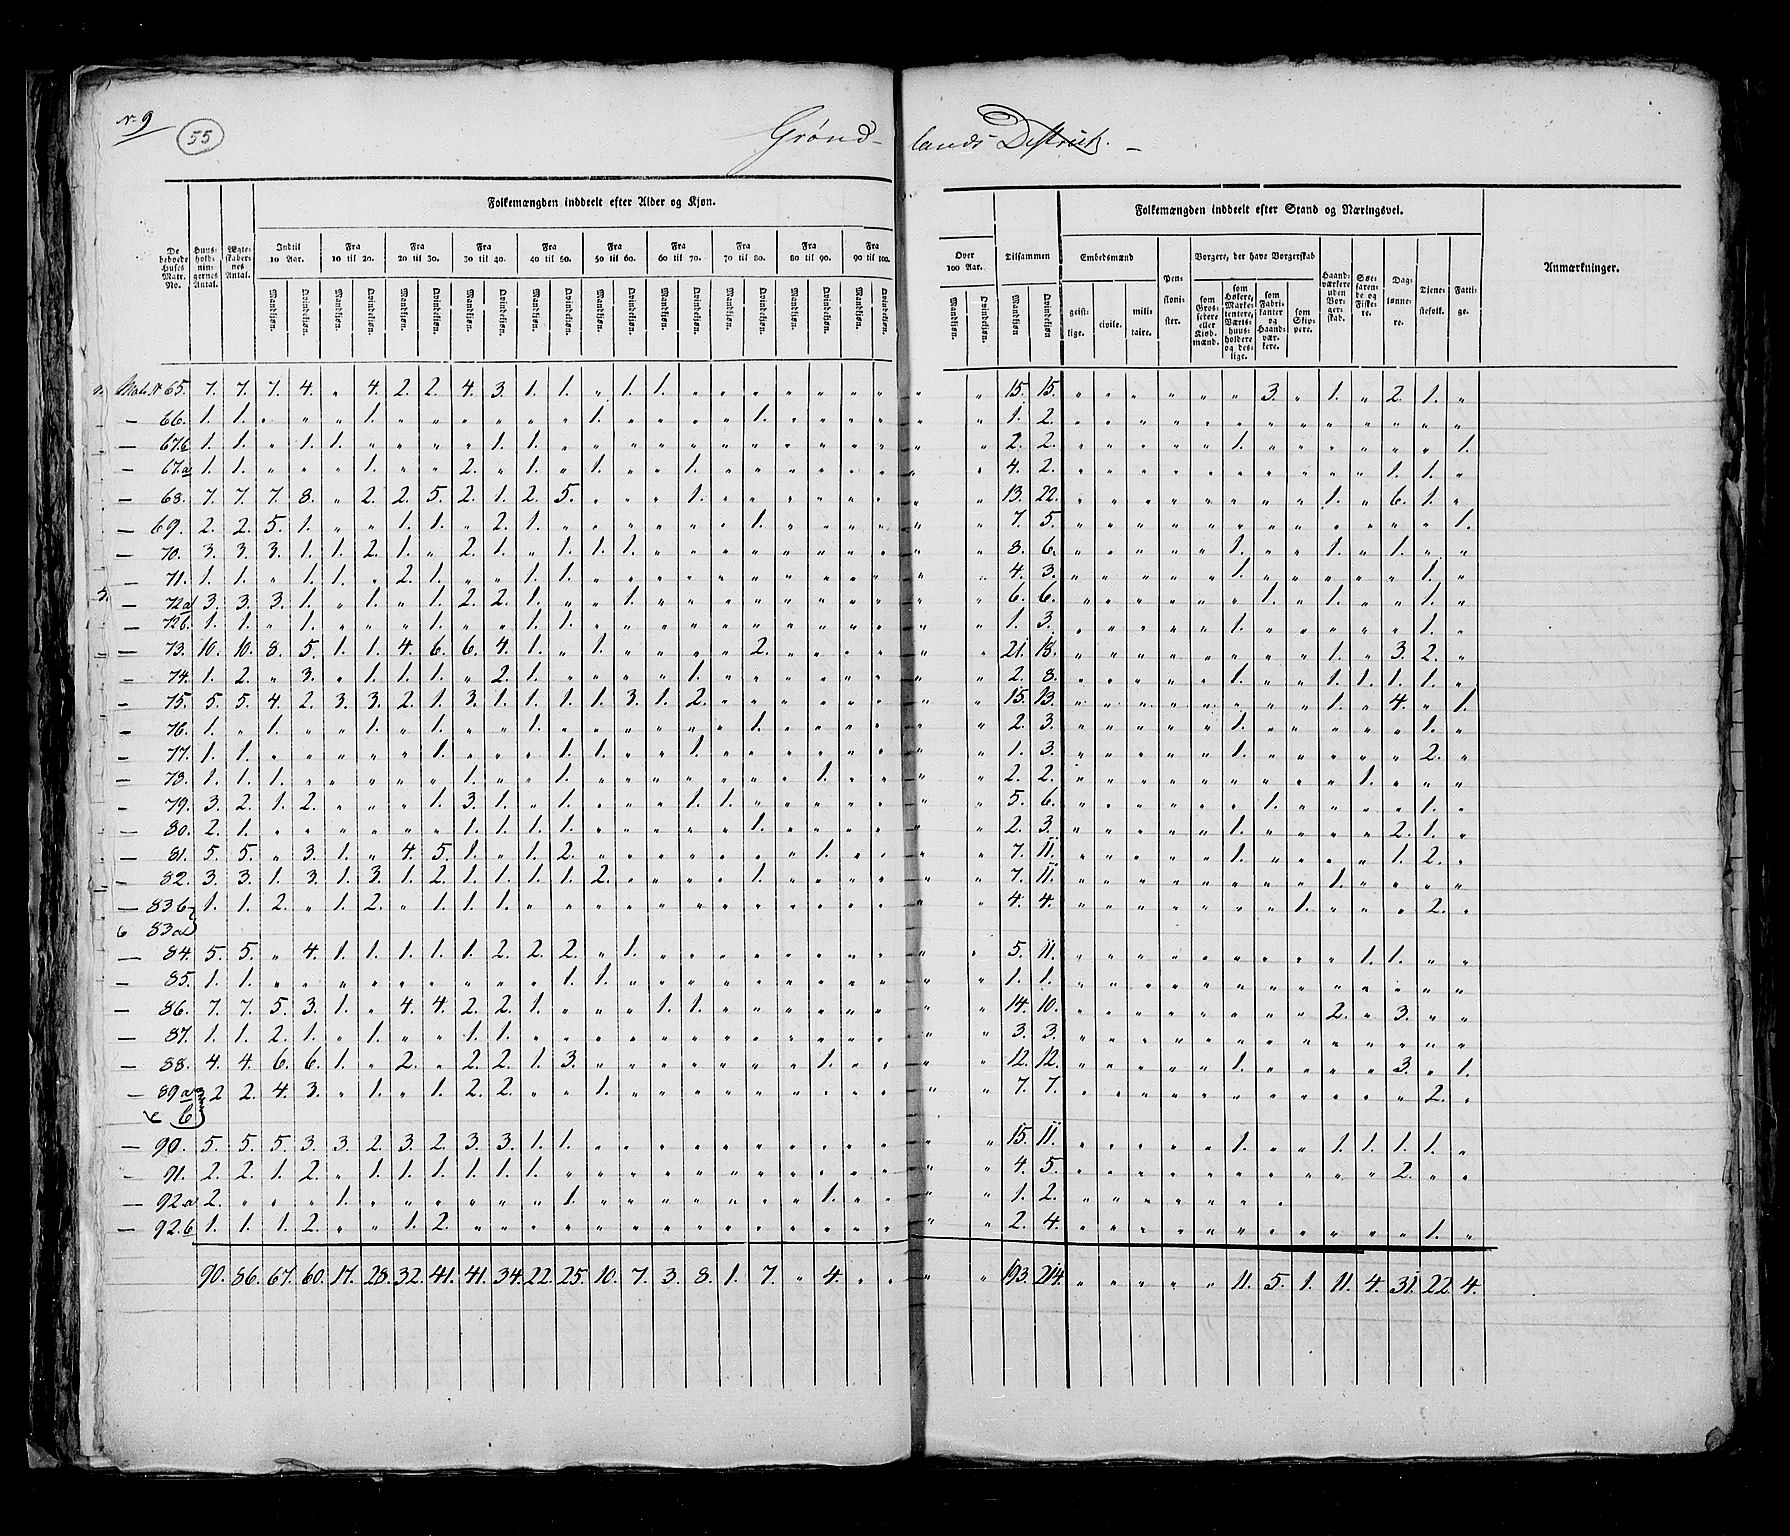 No 9
55
Grønd- lands District. -
Folkemængden inddeelt efter Alder og Kjøn.
Folkemængden inddeelt efter Stand og Næringsvei.
Anmærkninger.
De beboede Huses Matr. No.
Huus-hold-nin-gernes Antal.
Ægte-skaber-nes Antal.
Indtil 10 Aar.
Fra 10 til 20.
Fra 20 til 30.
Fra 30 til 40.
Fra 40 til 50.
Fra 50 til 60.
Fra 60 til 70.
Fra 70 til 80.
Fra 80 til 90.
Fra 90 til 100.
Over 100 Aar.
Tilsammen
Embedsmænd
Pen-sioni-ster.
Borgere, der have Borgerskab
Haand-værkere uden Bor-ger-skab.
Søe-farende og Fiske-re.
Dag-lønne-re.
Tjene-stefolk.
Fatti-ge.
Mandkjøn. Qvindekjøn.
geist-lige. civile. mili-taire.
som Gros-serere eller Kjøb-mænd.
som Høkere, Marke-tentere, Værts-huus-holdere og des-lige.
som Fabri-kanter og Haand-vær-kere.
som Skip-pere.
Matr. No 65. 7. 7. 7. 4. „ 4. 2. 2. 4. 3. 1. 1. „ 1. 1. „ „ „ „ „ „ „ „ „ 15. 15. „ „ „ „ „ „ 3. „ 1. „ 2. 1. „
— 66. 1. 1. „ „ „ 1. „ „ „ „ „ „ 1. „ „ „ „ 1. „ „ „ „ „ „ 1. 2. „ „ „ „ „ „ „ „ „ „ „ „ „
— 67.b 1. 1. „ 1. 1. „ „ „ „ 1. 1. „ „ „ „ „ „ „ „ „ „ „ „ „ 2. 2. „ „ „ „ „ 1. „ „ „ „ „ „ 1.
— 67.a 1. 1. „ „ „ 1. „ „ 2. „ 1. „ 1. „ „ 1. „ „ „ „ „ „ „ „ 4. 2. „ „ „ „ „ „ „ „ „ „ 1. 1. „
— 68. 7. 7. 7. 8. „ 2. 2. 5. 2. 1. 2. 5. „ „ „ 1. „ „ „ „ „ „ „ „ 13. 22. „ „ „ „ „ „ „ „ 1. „ 6. 1. „
— 69. 2. 2. 5. 1. „ „ 1. 1. „ 2. 1. „ „ „ „ „ „ 1. „ „ „ „ „ „ 7. 5. „ „ „ „ „ „ „ „ „ „ „ „ 1.
— 70. 3. 3. 3. 1. 1. 2. 1. „ 2. 1. „ 1. 1. 1. „ „ „ „ „ „ „ „ „ „ 8. 6. „ „ „ „ „ 1. „ „ 1. „ 1. „ „
— 71. 1. 1. „ 1. 1. „ 2. 1. „ „ 1. 1. „ „ „ „ „ „ „ „ „ „ „ „ 4. 3. „ „ „ „ „ 1. „ „ „ „ „ 1. „
— 72a 3. 3. 3. 1. „ 1. „ 1. 2. 2. 1. „ „ 1. „ „ „ „ „ „ „ „ „ „ 6. 6. „ „ „ „ „ „ 1. „ 1. „ „ 1. „
— 72b. 1. 1. „ 1. „ „ „ 1. „ „ 1. 1. „ „ „ „ „ „ „ „ „ „ „ „ 1. 3. „ „ „ „ „ 1. „ „ „ „ „ 1. „
— 73. 10. 10. 8. 5. 1. 1. 4. 6. 6. 4. 1. „ 1. „ „ „ „ 2. „ „ „ „ „ „ 21. 18. „ „ „ „ „ „ „ „ 1. „ 3. 2. „
— 74. 1. 2. „ 3. „ 1. 1. 1. „ 2. 1. „ „ „ „ 1. „ „ „ „ „ „ „ „ 2. 8. „ „ „ „ „ 1. „ „ 1. 1. 1. 1. „
— 75. 5. 5. 4. 2. 3. 3. 2. 1. 3. 1. 1. 1. 1. 3. 1. 2. „ „ „ „ „ „ „ „ 15. 13. „ „ „ „ „ „ „ „ 1. „ 4. „ 1.
— 76. 1. „ 1. „ „ 1. „ 1. „ „ 1. „ „ „ „ „ „ 1. „ „ „ „ „ „ 2. 3. „ „ „ „ „ 1. „ „ „ „ „ 1. „
— 77. 1. 1. „ „ „ „ „ 1. „ „ „ 1. 1. „ „ 1. „ „ „ „ „ „ „ „ 1. 3. „ „ „ „ „ 1. „ „ „ „ „ 2. „
— 78. 1. 1. 1. „ „ „ „ „ 1. „ „ 1. „ „ „ „ „ „ „ 1. „ „ „ „ 2. 2. „ „ „ „ „ „ „ „ „ 1. „ „ „
— 79. 3. 2. 1. 2. „ „ „ 1. 3. 1. „ 1. „ „ „ 1. 1. „ „ „ „ „ „ „ 5. 6. „ „ „ „ „ „ 1. „ „ „ „ 1. „
— 80. 2. 1. „ „ „ „ „ „ 1. 1. 1. 1. „ „ „ „ „ 1. „ „ „ „ „ „ 2. 3. „ „ „ „ „ 1. „ „ „ „ 2. 1. „
— 81. 5. 5. „ 3. 1. „ 4. 5. 1. „ 1. 2. „ „ „ „ „ „ „ 1. „ „ „ „ 7. 11. „ „ „ „ „ 1. „ „ „ „ 1. 2. „
— 82. 3. 3. 1. 3. 1. 3. 1. 2. 1. 1. 1. 1. 2. „ „ „ „ 1. „ „ „ „ „ „ 7. 11. „ „ „ „ „ „ „ „ 1. „ „ „ „
— 83b 1. 1. 2. „ 1. 2. „ 1. 1. 1. „ „ „ „ „ „ „ „ „ „ „ „ „ „ 4. 4. „ „ „ „ „ „ „ 1. „ „ „ 2. „
83a
— 84. 5. 5. „ 4. 1. 1. 1. 1. 1. 2. 2. 2. „ 1. „ „ „ „ „ „ „ „ „ „ 5. 11. „ „ „ „ „ „ „ „ „ 1. 1. „ „
— 85. 1. 1. „ „ „ „ „ „ „ „ „ 1. 1. „ „ „ „ „ „ „ „ „ „ „ 1. 1. „ „ „ „ „ „ „ „ „ „ „ „ „
— 86. 7. 7. 5. 3. 1. „ 4. 4. 2. 2. 1. „ „ „ 1. 1. „ „ „ „ „ „ „ „ 14. 10. „ „ „ „ „ „ „ „ 2. „ 3. „ „
— 87. 1. 1. 2. 1. „ 1. „ „ 1. 1. „ „ „ „ „ „ „ „ „ „ „ „ „ „ 3. 3. „ „ „ „ „ „ „ „ „ „ „ „ „
— 88. 4. 4. 6. 6. 1. „ 2. „ 2. 2. 1. 3. „ „ „ „ „ „ „ 1. „ „ „ „ 12. 12. „ „ „ „ „ 1. „ „ „ „ 3. „ 1.
— 89a 2 2. 4. 3. „ 1. „ 1. 2. 2. „ „ 1. „ „ „ „ „ „ „ „ „ „ „ 7. 7. „ „ „ „ „ „ „ „ „ „ „ 2. „
b
— 90. 5. 5. 5. 3. 3. 2. 3. 2. 3. 3. 1. 1. „ „ „ „ „ „ „ „ „ „ „ „ 15. 11. „ „ „ „ „ 1. „ „ 1. 1. 1. 1. „
— 91. 2. 2. 1. 2. „ 1. 1. 1. 1. 1. 1. „ „ „ „ „ „ „ „ „ „ „ „ „ 4. 5. „ „ „ „ „ „ „ „ „ „ 2. „ „
— 92a 2. „ „ „ 1. „ „ „ „ „ „ 1. „ „ „ „ „ „ „ 1. „ „ „ „ 1. 2. „ „ „ „ „ „ „
— 92.b 1. 1. 1. 2. „ „ 1. 2. „ „ „ „ „ „ „ „ „ „ „ „ „ „ „ „ 2. 4. „ „ „ „ „ „ „ „ „ „ „ 1. „
90. 86. 67. 60. 17. 28. 32. 41. 41. 34. 22. 25. 10. 7. 3. 8. 1. 7. „ 4. „ „ „ „ 193. 214. „ „ „ „ „ 11. 5. 1. 11. 4. 31. 22. 4.